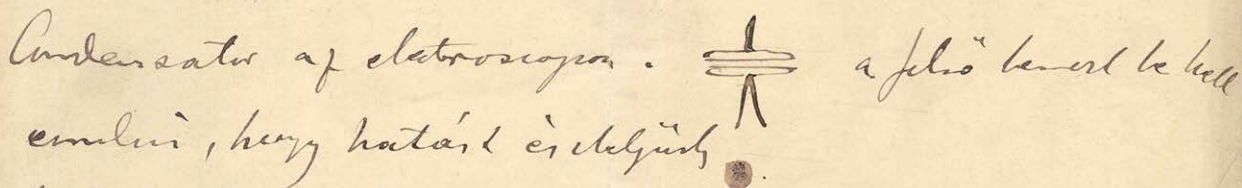 Condensator az elektroscopon. a felső lemezt be kell
emelni, hogy hatást észleljünk